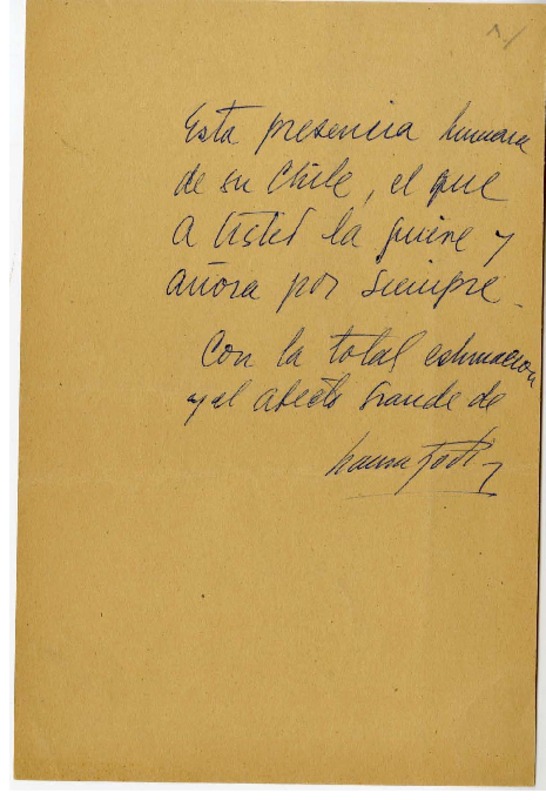 Esta presencia humana
de su Chile, el que
a Usted la quiere y
añora por siempre
Con la total estimación
y el afecto grande de
Laura